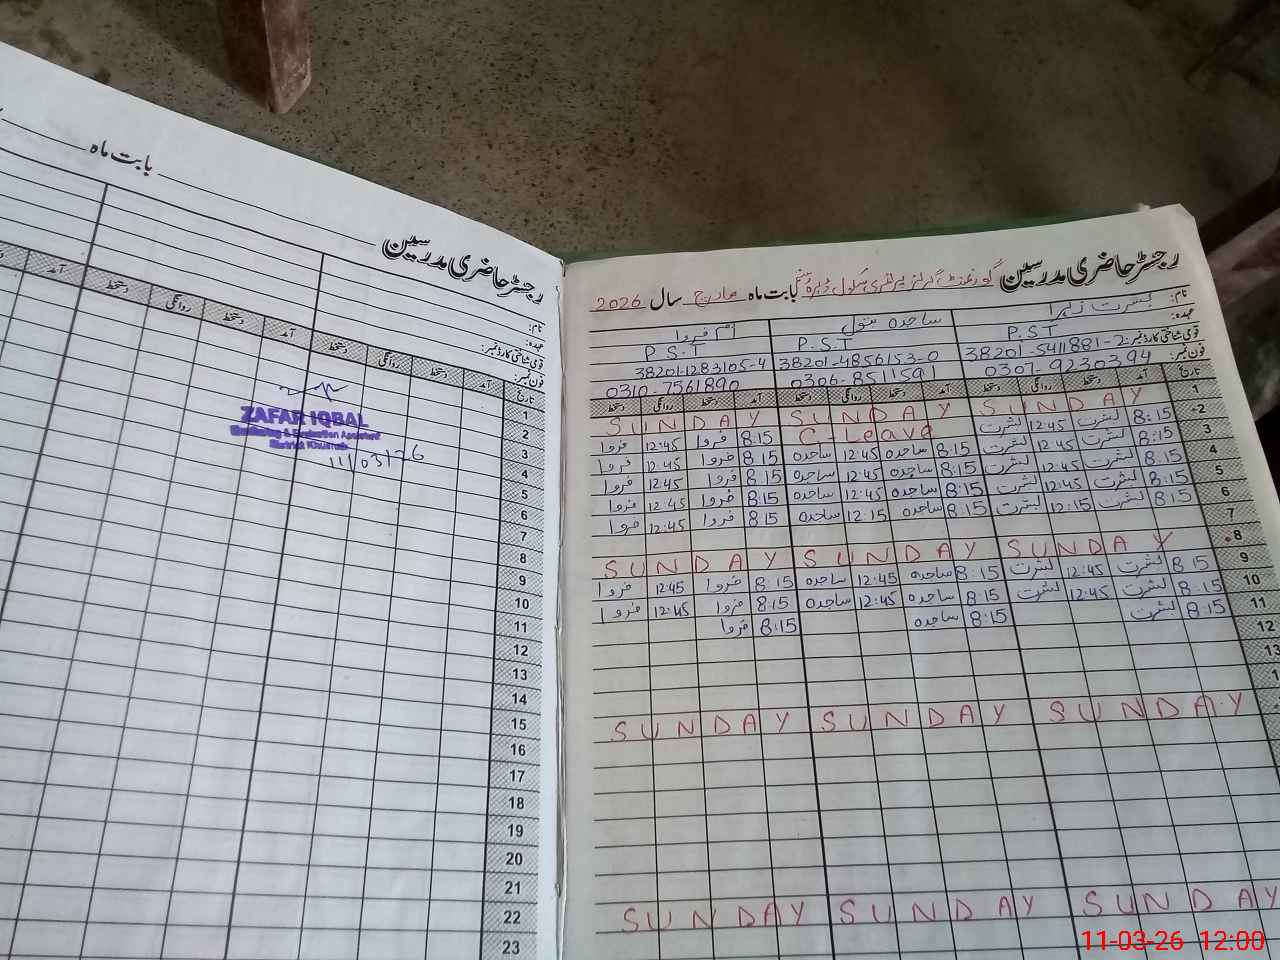 بابت ماہ
رجسٹر حاضری مدرسین
نام:
عہدہ:
قومی شناختی کارڈ نمبر:
فون نمبر:
آمد دستخط روانگی دستخط آمد دستخط روانگی دستخط آمد تاریخ
1
2
3
4
5
6
7
8
9
10
11
12
13
14
15
16
17
18
19
20
21
22
23
ZAFAR IQBAL
Monitoring & Evaluation Assistant
District Khushab
11/03/26
رجسٹر حاضری مدرسین گورنمنٹ گرلز پرائمری سکول ڈیرہ بابت ماہ مارچ سال 2026
نام: بشرت زہرا ساجدہ بتول ام فروا
عہدہ: P.S.T P.S.T P.S.T
قومی شناختی کارڈ نمبر: 38201-5411881-2 38201-4856153-0 38201-1283105-4
فون نمبر: 0307-9230394 0306-8511591 0310-7561890
تاریخ آمد دستخط روانگی دستخط آمد دستخط روانگی دستخط آمد دستخط روانگی دستخط
1 SUNDAY SUNDAY SUNDAY
2 8:15 بشرت 12:45 بشرت C-Leave 8:15 فروا 12:45 فروا
3 8:15 بشرت 12:45 بشرت 8:15 ساجدہ 12:45 ساجدہ 8:15 فروا 12:45 فروا
4 8:15 بشرت 12:45 بشرت 8:15 ساجدہ 12:45 ساجدہ 8:15 فروا 12:45 فروا
5 8:15 بشرت 12:45 بشرت 8:15 ساجدہ 12:45 ساجدہ 8:15 فروا 12:45 فروا
6 8:15 بشرت 12:15 بشرت 8:15 ساجدہ 12:15 ساجدہ 8:15 فروا 12:45 فروا
7
8 SUNDAY SUNDAY SUNDAY
9 8:15 بشرت 12:45 بشرت 8:15 ساجدہ 12:45 ساجدہ 8:15 فروا 12:45 فروا
10 8:15 بشرت 12:45 بشرت 8:15 ساجدہ 12:45 ساجدہ 8:15 فروا 12:45 فروا
11 8:15 بشرت 8:15 ساجدہ 8:15 فروا
12
13
SUNDAY SUNDAY SUNDAY
SUNDAY SUNDAY SUNDAY
11-03-26 12:00